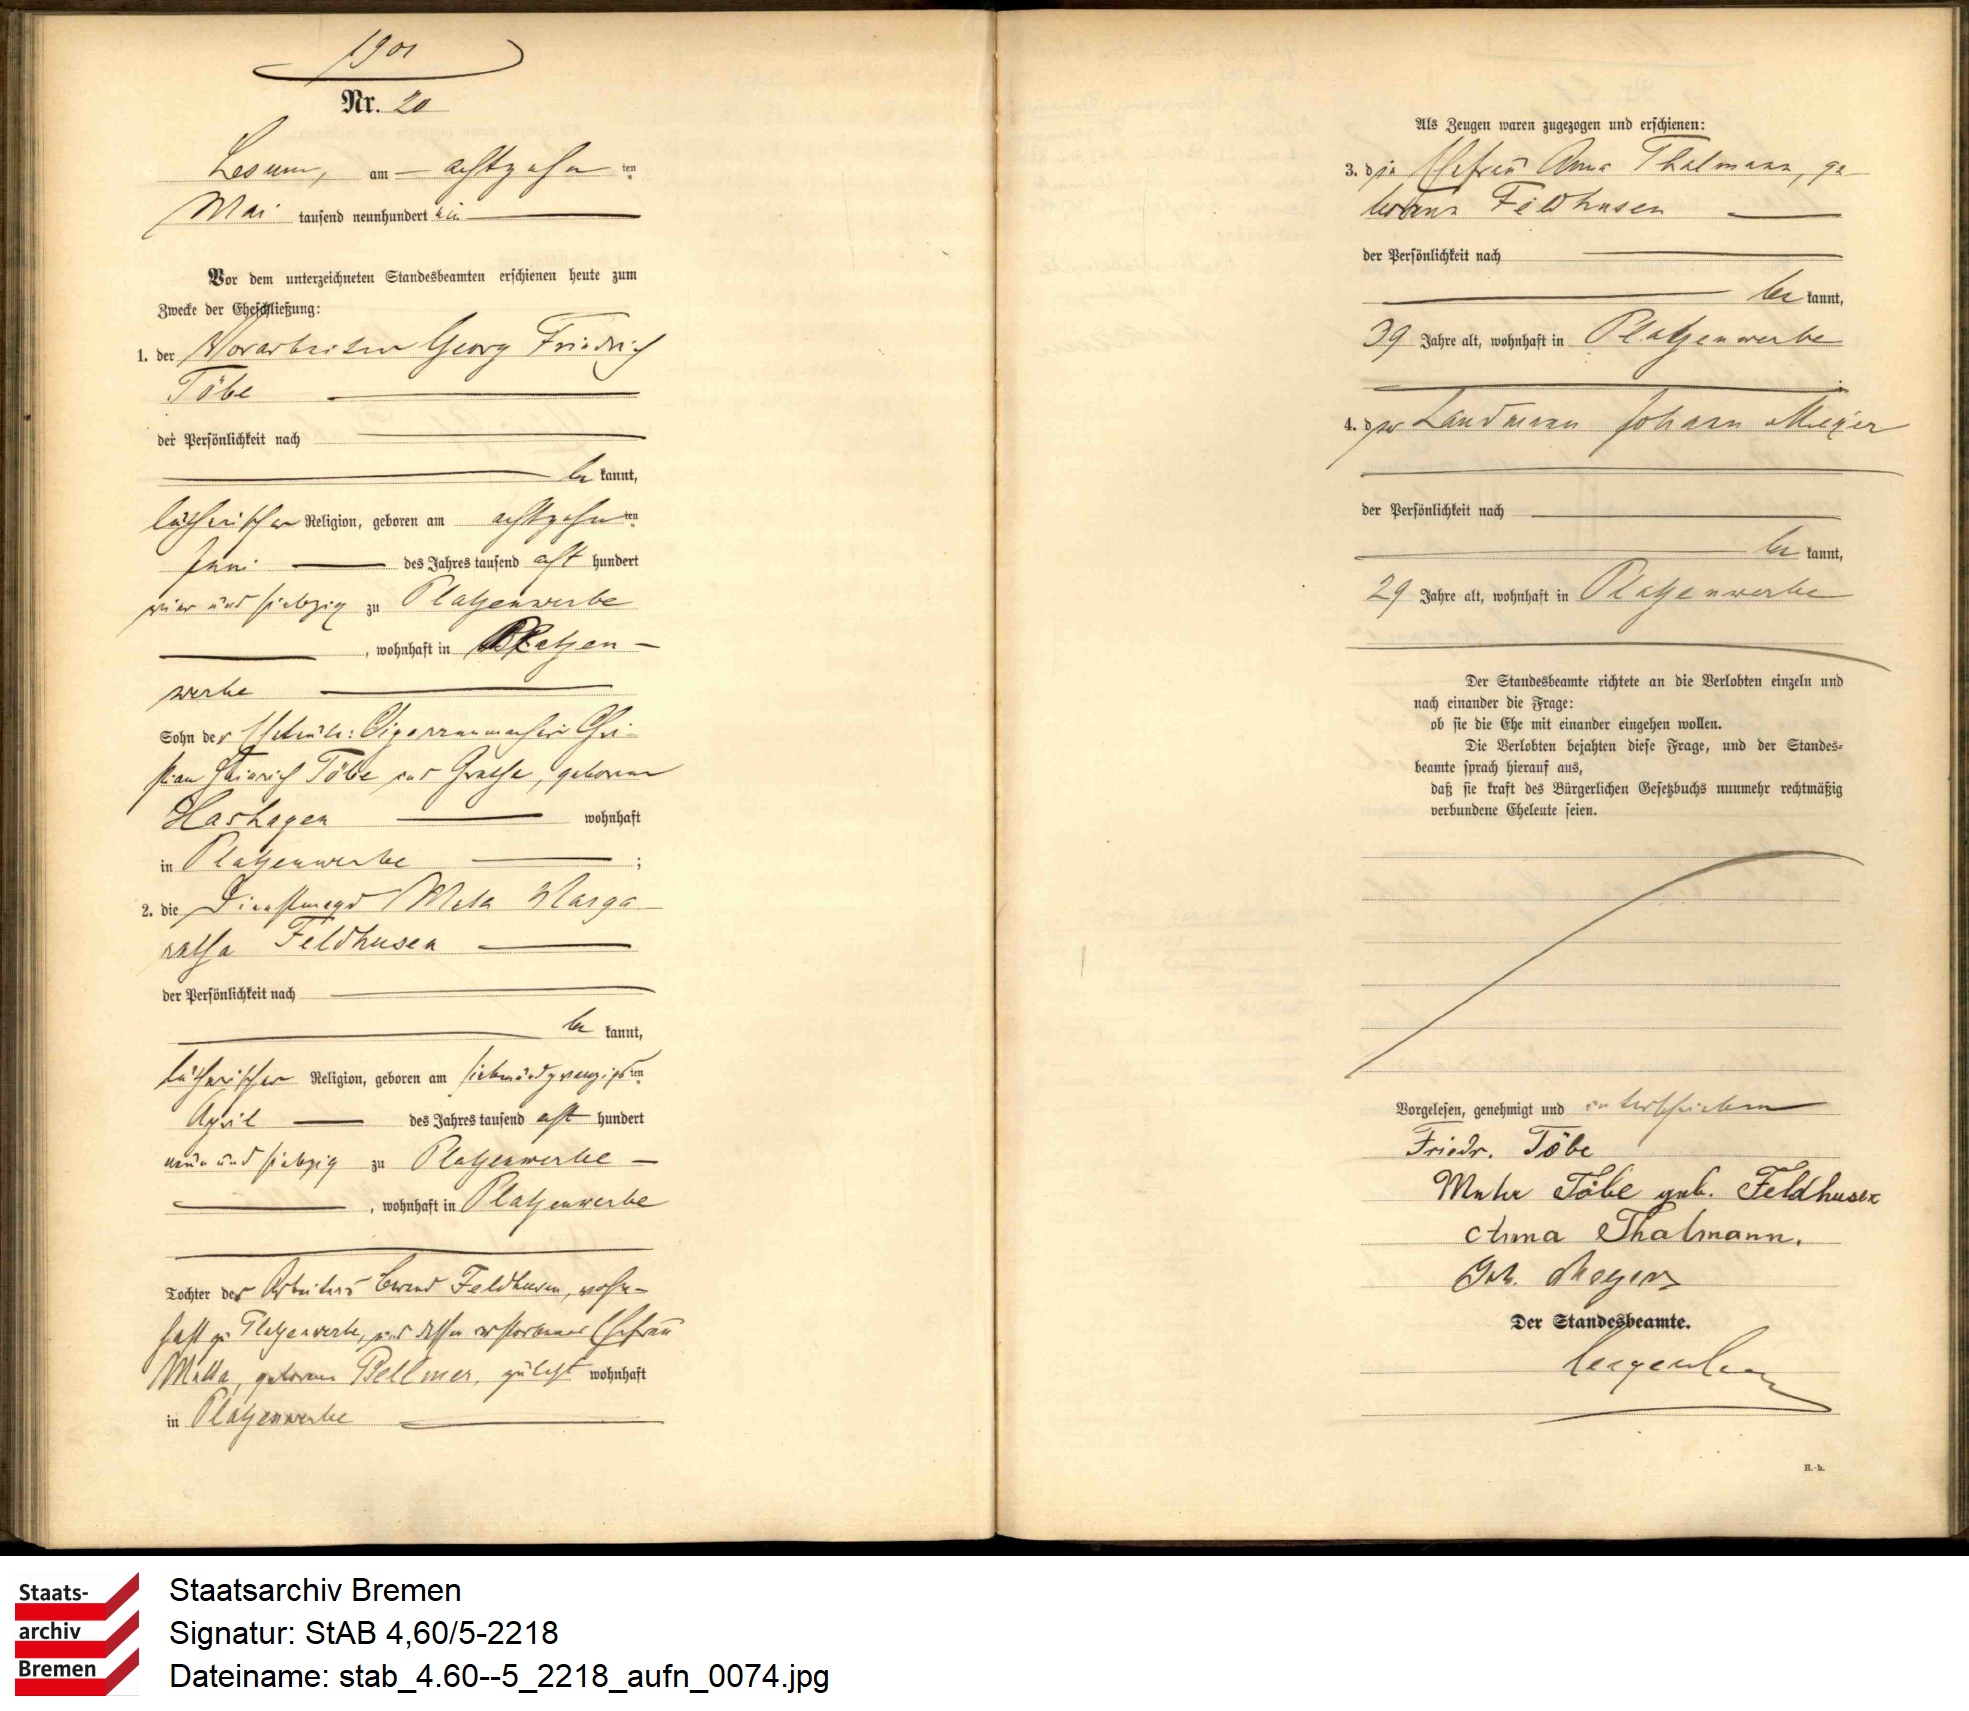 1901
Nr. 20
Lesum, am achtzehnten
Mai tausend neunhundert ein
Vor dem unterzeichneten Standesbeamten erschienen heute zum
Zwecke der Eheschließung:
1. der Vorarbeiter Georg Friedrich
Töbe
der Persönlichkeit nach
be kannt,
lutherischer Religion, geboren am achtzehnten
Juni des Jahres tausend acht hundert
vier und siebzig zu Platjenwerbe
, wohnhaft in Platjen-
werbe
Sohn der Eheleute: Cigarrenmacher Chri-
stian Hinrich Töbe und Gesche, geborene
Hashagen wohnhaft
in Platjenwerbe ;
2. die Dienstmagd Meta Marga-
retha Feldhusen
der Persönlichkeit nach
be kannt,
lutherischer Religion, geboren am siebenundzwanzigsten
April des Jahres tausend acht hundert
neun und siebzig zu Platjenwerbe
, wohnhaft in Platjenwerbe
Tochter des Arbeiters Berend Feldhusen, wohn-
haft zu Platjenwerbe, und dessen verstorbener Ehefrau
Metta, geborene Bellmer, zuletzt wohnhaft
in Platjenwerbe
Als Zeugen waren zugezogen und erschienen:
3. die Ehefrau Anna Thalmann, ge-
borene Feldhusen
der Persönlichkeit nach
be kannt,
39 Jahre alt, wohnhaft in Platjenwerbe
4. der Landmann Johann Meyer
der Persönlichkeit nach
be kannt,
29 Jahre alt, wohnhaft in Platjenwerbe
Der Standesbeamte richtete an die Verlobten einzeln und
nach einander die Frage:
ob sie die Ehe mit einander eingehen wollen.
Die Verlobten bejahten diese Frage, und der Standes-
beamte sprach hierauf aus,
daß sie kraft des Bürgerlichen Gesetzbuchs nunmehr rechtmäßig
verbundene Eheleute seien.
Vorgelesen, genehmigt und unterschrieben
Friedr. Töbe
Töbe geb. Feldhusen
Anna Thalmann.
Joh. Meyer
Der Standesbeamte.
H.-h.
Staats-
archiv
Bremen
Staatsarchiv Bremen
Signatur: StAB 4,60/5-2218
Dateiname: stab_4.60--5_2218_aufn_0074.jpg